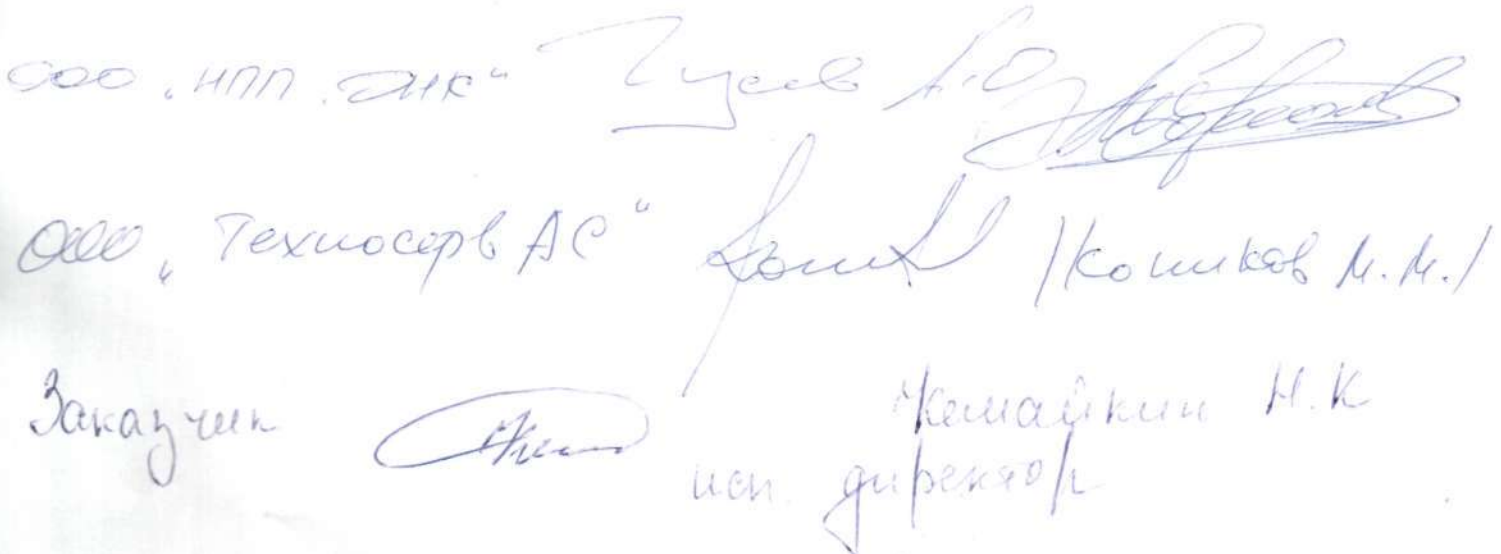 ООО "НПП. ЭНК" Гусев А.О.
ООО "Техносерв АС" /Коников М.М./
Заказчик Кемайкин Н.К
исп. директор